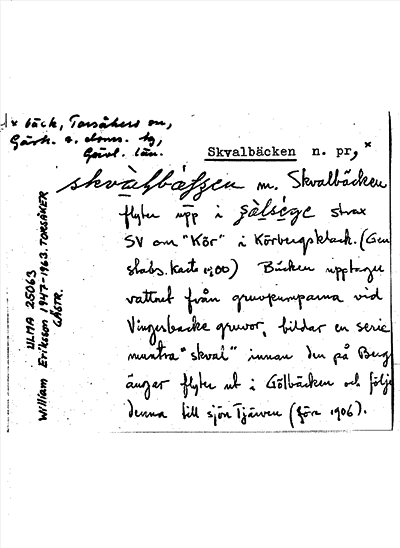 * bäck, Torsåkers sn,
Gästr. ö. doms. hg,
Gävl. län.
Skvalbäcken n. pr,*
m. Skvalbäcken
flyter upp i strax
SV om "Kör" i Körbergsklack. (Gen
stabs. karta 1:00) Bäcken upptager
vattnet från gruvpumparna vid
Vingesbacke gruvor, bildar en serie
muntra "skval" innan den på Berg
ängar flyter ut i Gölbäcken och följe
denna till sjön Tjärven (före 1906).
ULMA 25063
William Eriksson 1947-1963. TORSÅKER
GÄSTR.